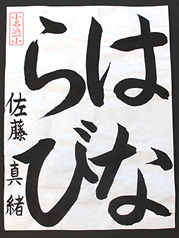 はな
らび
佐藤 真緒